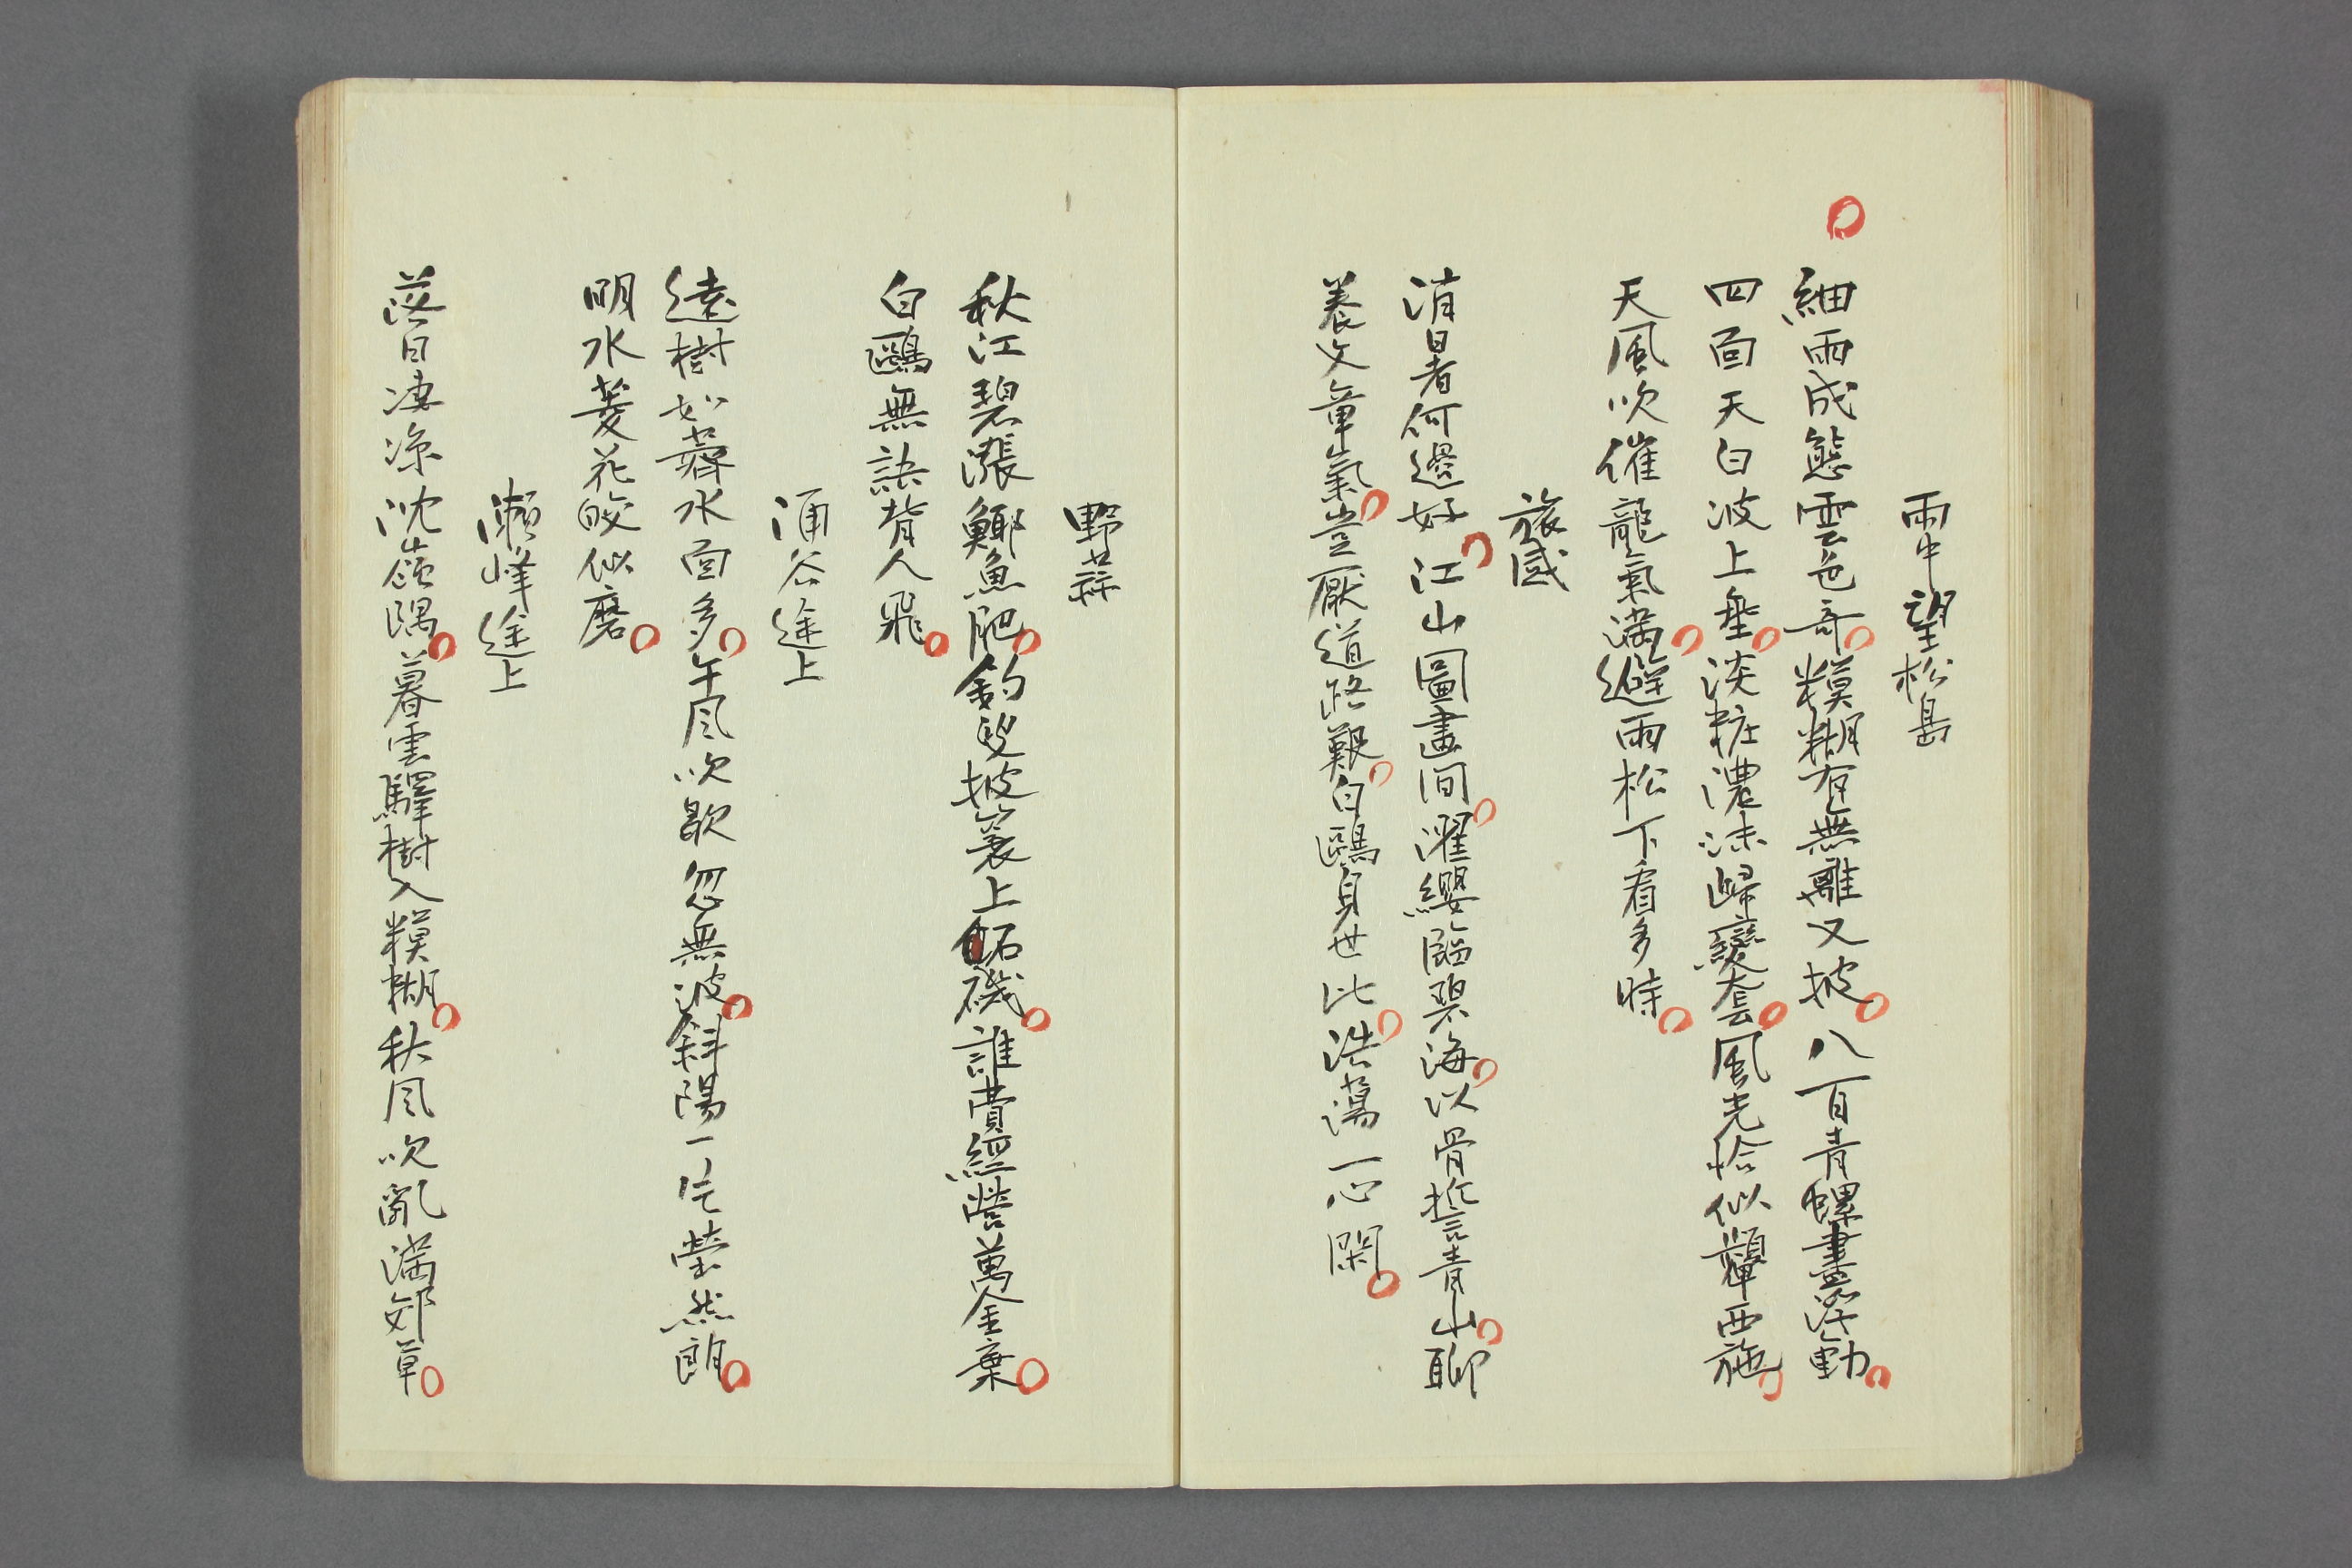 雨中望松島
細雨成態雲色奇糢糊有無離又披八百青螺盡浮動
四面天白波上垂淡粧濃沫歸變套風光恰似顰西施
天風吹催龍氣滿避雨松下看多時
旅感
消暑何邊好江山圖畫间濯纓臨碧海以骨誓青山聊
養文章氣豈厭道路艱白鷗身世比浩蕩一心閑
野蒜
秋江碧漲鯽魚肥釣叟披簑上石磯誰費經營萬金棄
白鷗無訣背人飛
涌谷途上
遠樹如薺水面多午风吹歇忽無波斜陽一片瑩然朗
明水菱花皎似磨
瀬峰途上
落日凄凉沈嶺隅暮雲驛樹入糢糊秋风吹亂滿郊草